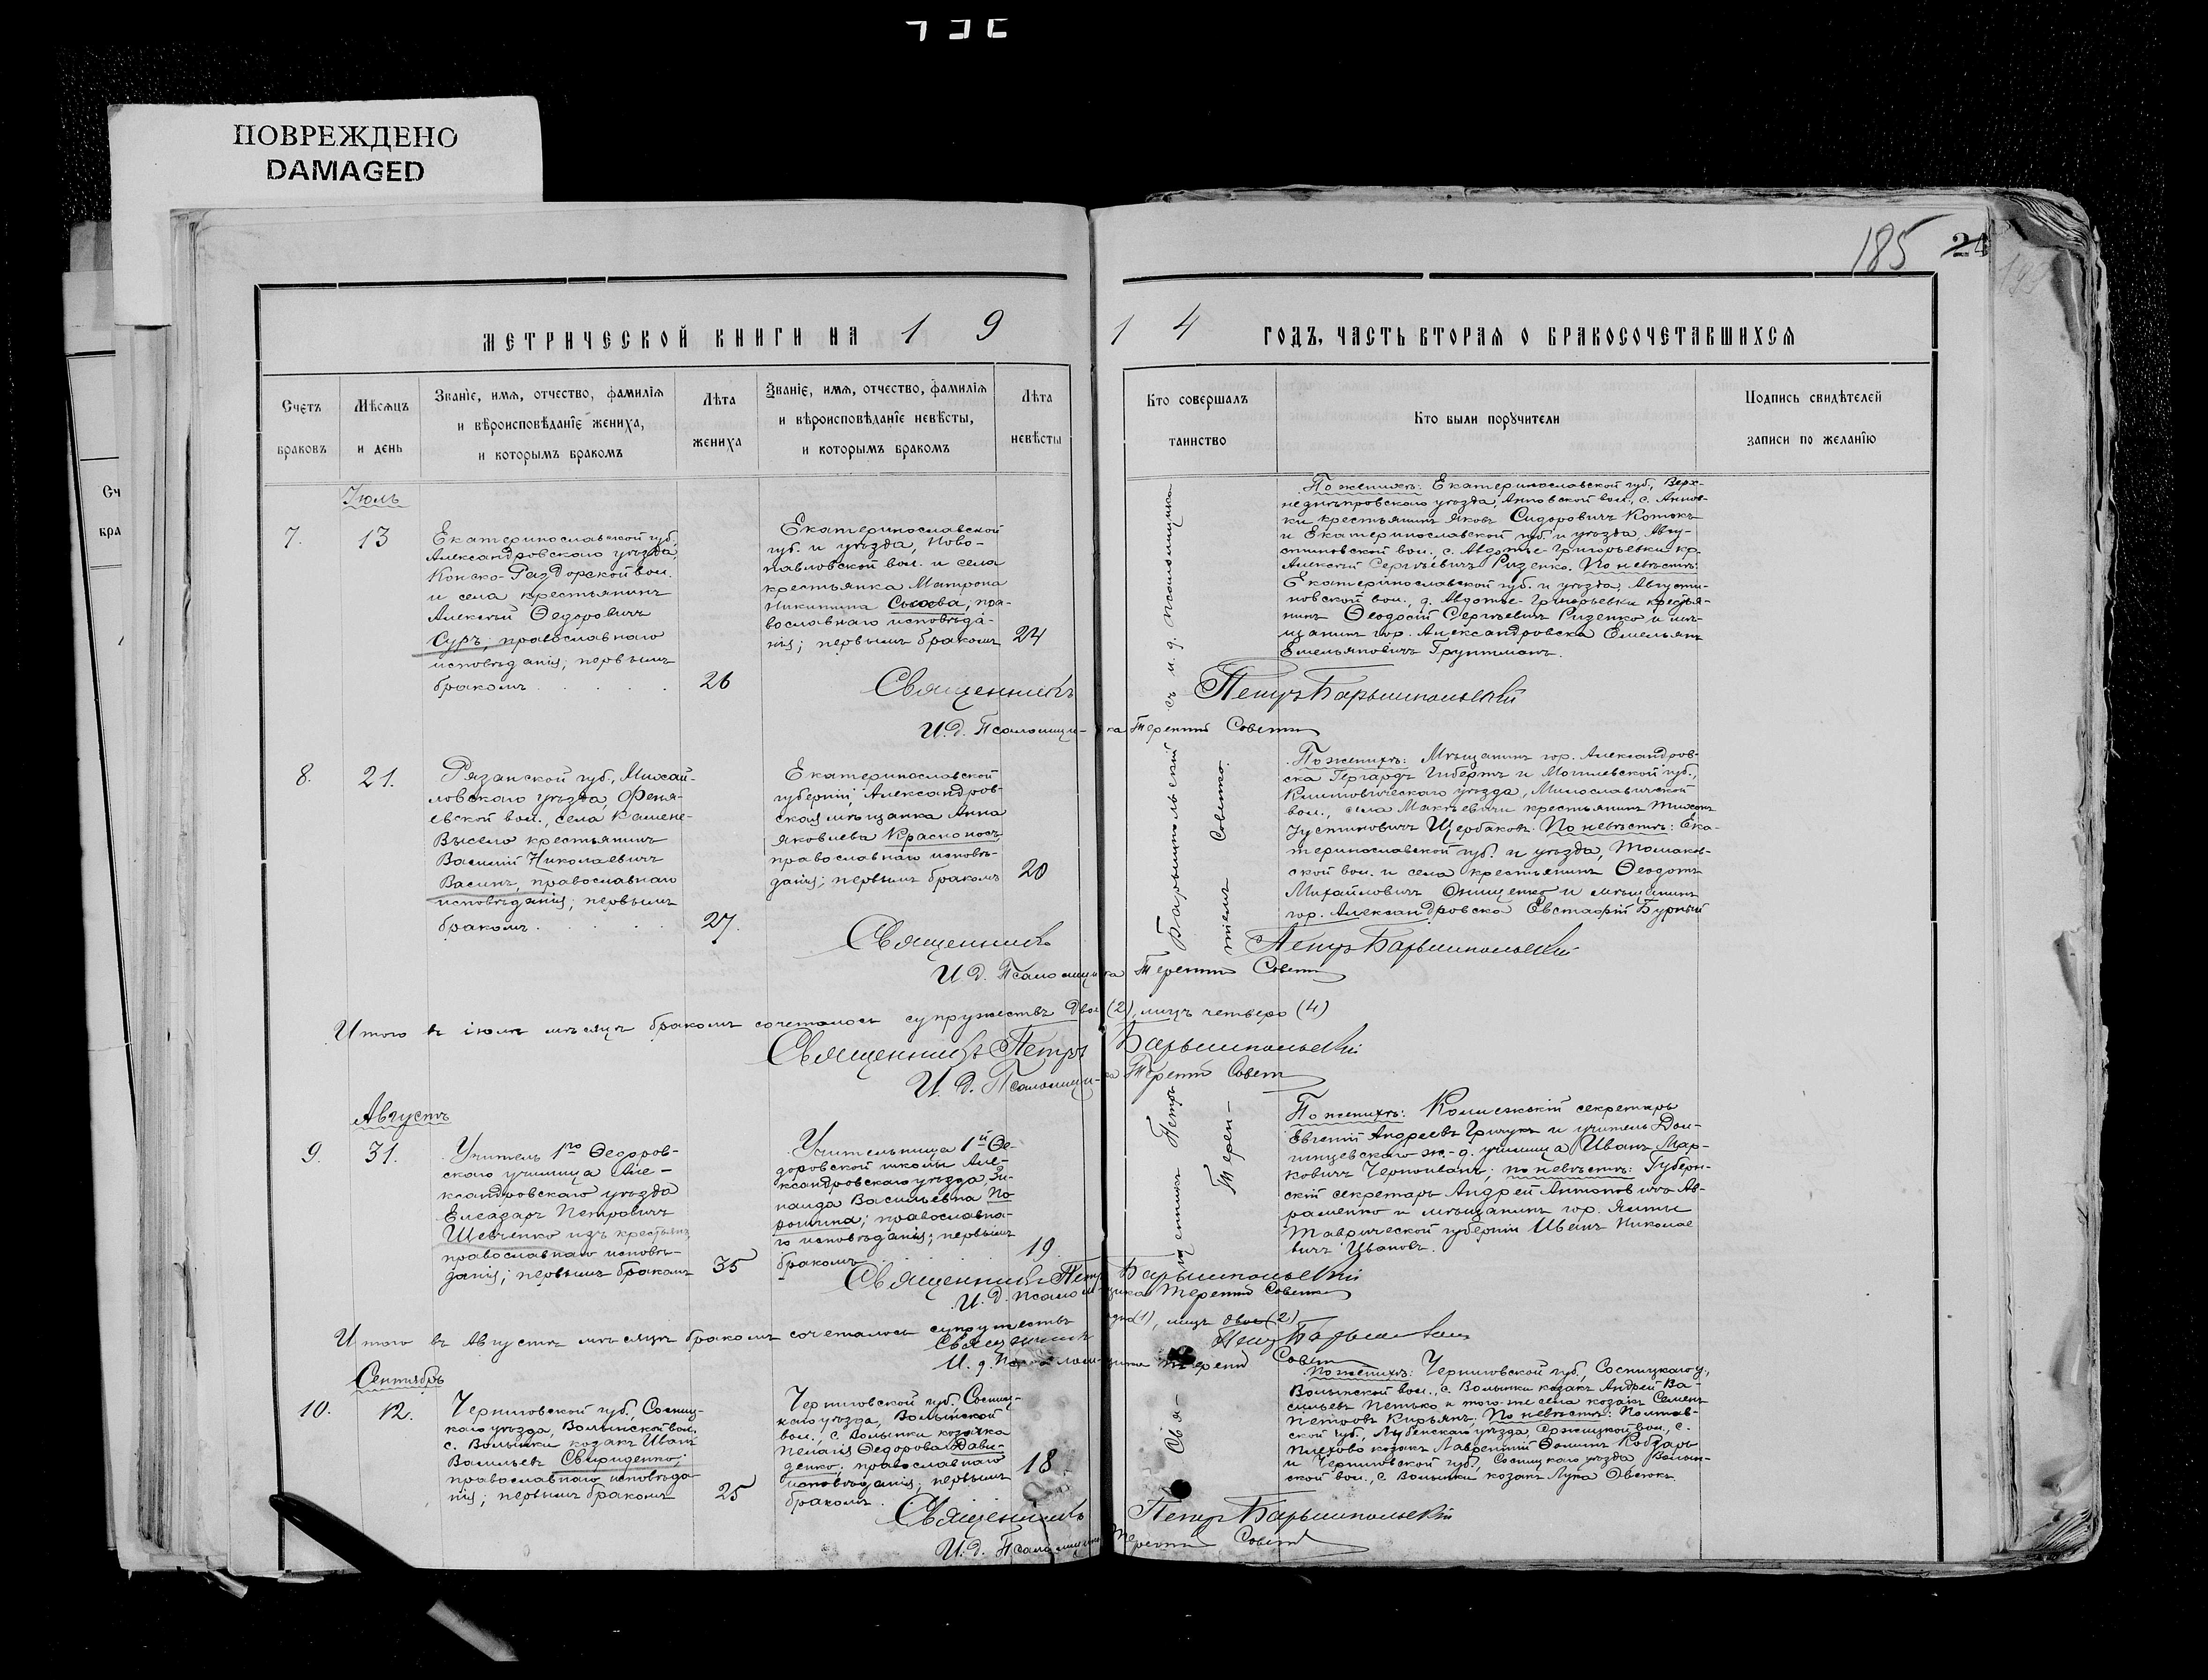 ПОВРЕЖДЕНО
DAMAGED
185
24
МЕТРИЧЕСКОЙ КНИГИ НА 1 9 1 4 ГОДЪ, ЧАСТЬ ВТОРАЯ О БРАКОСОЧЕТАВШИХСЯ
Счетъ
браковъ
Мѣсяцъ
и день
Званіе, имя, отчество, фамилія
и вѣроисповѣданіе жениха,
и которымъ бракомъ
Лѣта
жениха
Званіе, имя, отчество, фамилія
и вѣроисповѣданіе невѣсты,
и которымъ бракомъ
Лѣта
невѣсты
Кто совершалъ
таинство
Кто были поручители
Подпись свидѣтелей
записи по желанію
Сч
бра
Іюль
7.
13
Екатеринославской губ.,
Александровскаго уѣзда,
Конско-Раздорской вол.
и села крестьянинъ
Алексѣй Ѳедоровичъ
Суръ; православнаго
исповѣданія; первымъ
бракомъ
26
Екатеринославской
губ. и уѣзда, Ново-
павловской вол. и села
крестьянка Матрона
Никитина Сысоева, пра-
вославнаго исповѣда-
нія; первымъ бракомъ
24
По женихѣ: Екатеринославской губ., Верх-
неднѣпровскаго уѣзда, Анновской вол., с. Аннов-
ки крестьянинъ Яковъ Сидоровичъ Котокъ
и Екатеринославской губ. и уѣзда, Авгу-
стиновской вол., с. Авдотье-Григорьевки кр.
Алексѣй Сергѣевичъ Ризенко. По невѣстѣ:
Екатеринославской губ. и уѣзда, Августи-
новской вол., д. Авдотье-Григорьевки крестья-
нинъ Ѳеодосій Сергѣевичъ Ризенко и мѣ-
щанинъ гор. Александровска Емельянъ
Емельяновичъ Грунтманъ.
Священникъ Петръ Барышпольскій
И.д. Псаломщика Терентій Советко
8.
21.
Рязанской губ., Михай-
ловскаго уѣзда, Феня-
евской вол., села Камене-
Высело крестьянинъ
Василій Николаевичъ
Васинъ, православнаго
исповѣданія; первымъ
бракомъ
27.
Екатеринославской
губерніи, Александров-
ская мѣщанка Анна
Яковлева Красноносъ
православнаго исповѣ-
данія; первымъ бракомъ
20
По женихѣ: Мѣщанинъ гор. Александров-
ска Гергардъ Гибертъ и Могилевской губ.,
Климовичскаго уѣзда, Милославичской
вол., села Макѣевичи крестьянинъ Тихонъ
Іустиновичъ Щербаковъ. По невѣстѣ: Ека-
теринославской губ. и уѣзда, Томаков-
ской вол. и села крестьянинъ Ѳеодотъ
Михайловичъ Онищенко и мѣщанинъ
гор. Александровска Евстафій Бурный
Священникъ Петръ Барышпольскій
И.д. Псаломщика Терентій Советко
Итого въ іюлѣ мѣсяцѣ бракомъ сочеталось супружествъ двое (2), лицъ четверо (4)
Священникъ Петръ Барышпольскій
И.д. Псаломщика Терентій Советко
Священникъ Петръ Барышпольскій съ и. д. псаломщика
Терен-
тіемъ Советко.
Августъ
9.
31.
Учитель 1го Ѳедоров-
скаго училища Але-
ксандровскаго уѣзда
Елеазаръ Петровичъ
Шевченко изъ крестьянъ
православнаго исповѣ-
данія; первымъ бракомъ
35
Учительница 1й Ѳе-
доровской школы Але-
ксандровскаго уѣзда, Зи-
наида Васильевна По
ронина; православна-
го исповѣданія; первымъ
бракомъ
19
По женихѣ: Коллежскій секретарь
Евгеній Андреевъ Гричукъ и учитель Дол-
гинцевскаго ж.-д. училища Иванъ Мар-
ковичъ Черноиванъ; по невѣстѣ: Губерн-
скій секретарь Андрей Антоновичъ Ав-
раменко и мѣщанинъ гор. Ялты
Таврической губерніи Иванъ Николае
вичъ Ивановъ.
Священникъ Петръ Барышпольскій
И.д. псаломщика Терентій Советко
Итого въ Августѣ мѣсяцѣ бракомъ сочеталось супружествъ одно (1), лицъ двое (2)
Священникъ Петръ Барышпольскій
И.д. Псаломщика Терентій Советко
Сентябрь
10.
12.
Черниговской губ., Сосниц-
каго уѣзда, Волынской вол.
с. Волынки козакъ Иванъ
Васильевъ Свириденко;
православнаго исповѣда-
нія; первымъ бракомъ
25
Черниговской губ. Сосниц-
каго уѣзда, Волынской
вол., с. Волынки козачка
Пелагія Ѳедорова Дави-
денко; православнаго
исповѣданія, первымъ
бракомъ.
18
По женихѣ: Черниговской губ., Сосницкаго у.,
Волынской вол., с. Волынки козакъ Андрей Ва-
сильевъ Петько и того-же села козакъ Семенъ
Петровъ Кирьянъ; По невѣстѣ: Полтав-
ской губ., Лубенскаго уѣзда, Оржицкой вол., с.
Плехово козакъ Лаврентій Ѳоминъ Кобзарь
и Черниговской губ., Сосницкаго уѣзда Волын-
ской вол., с. Волынки козакъ Лука Овсюкъ.
Свя-
Священникъ Петръ Барышпольскій
И.д. Псаломщика Терентій Советко